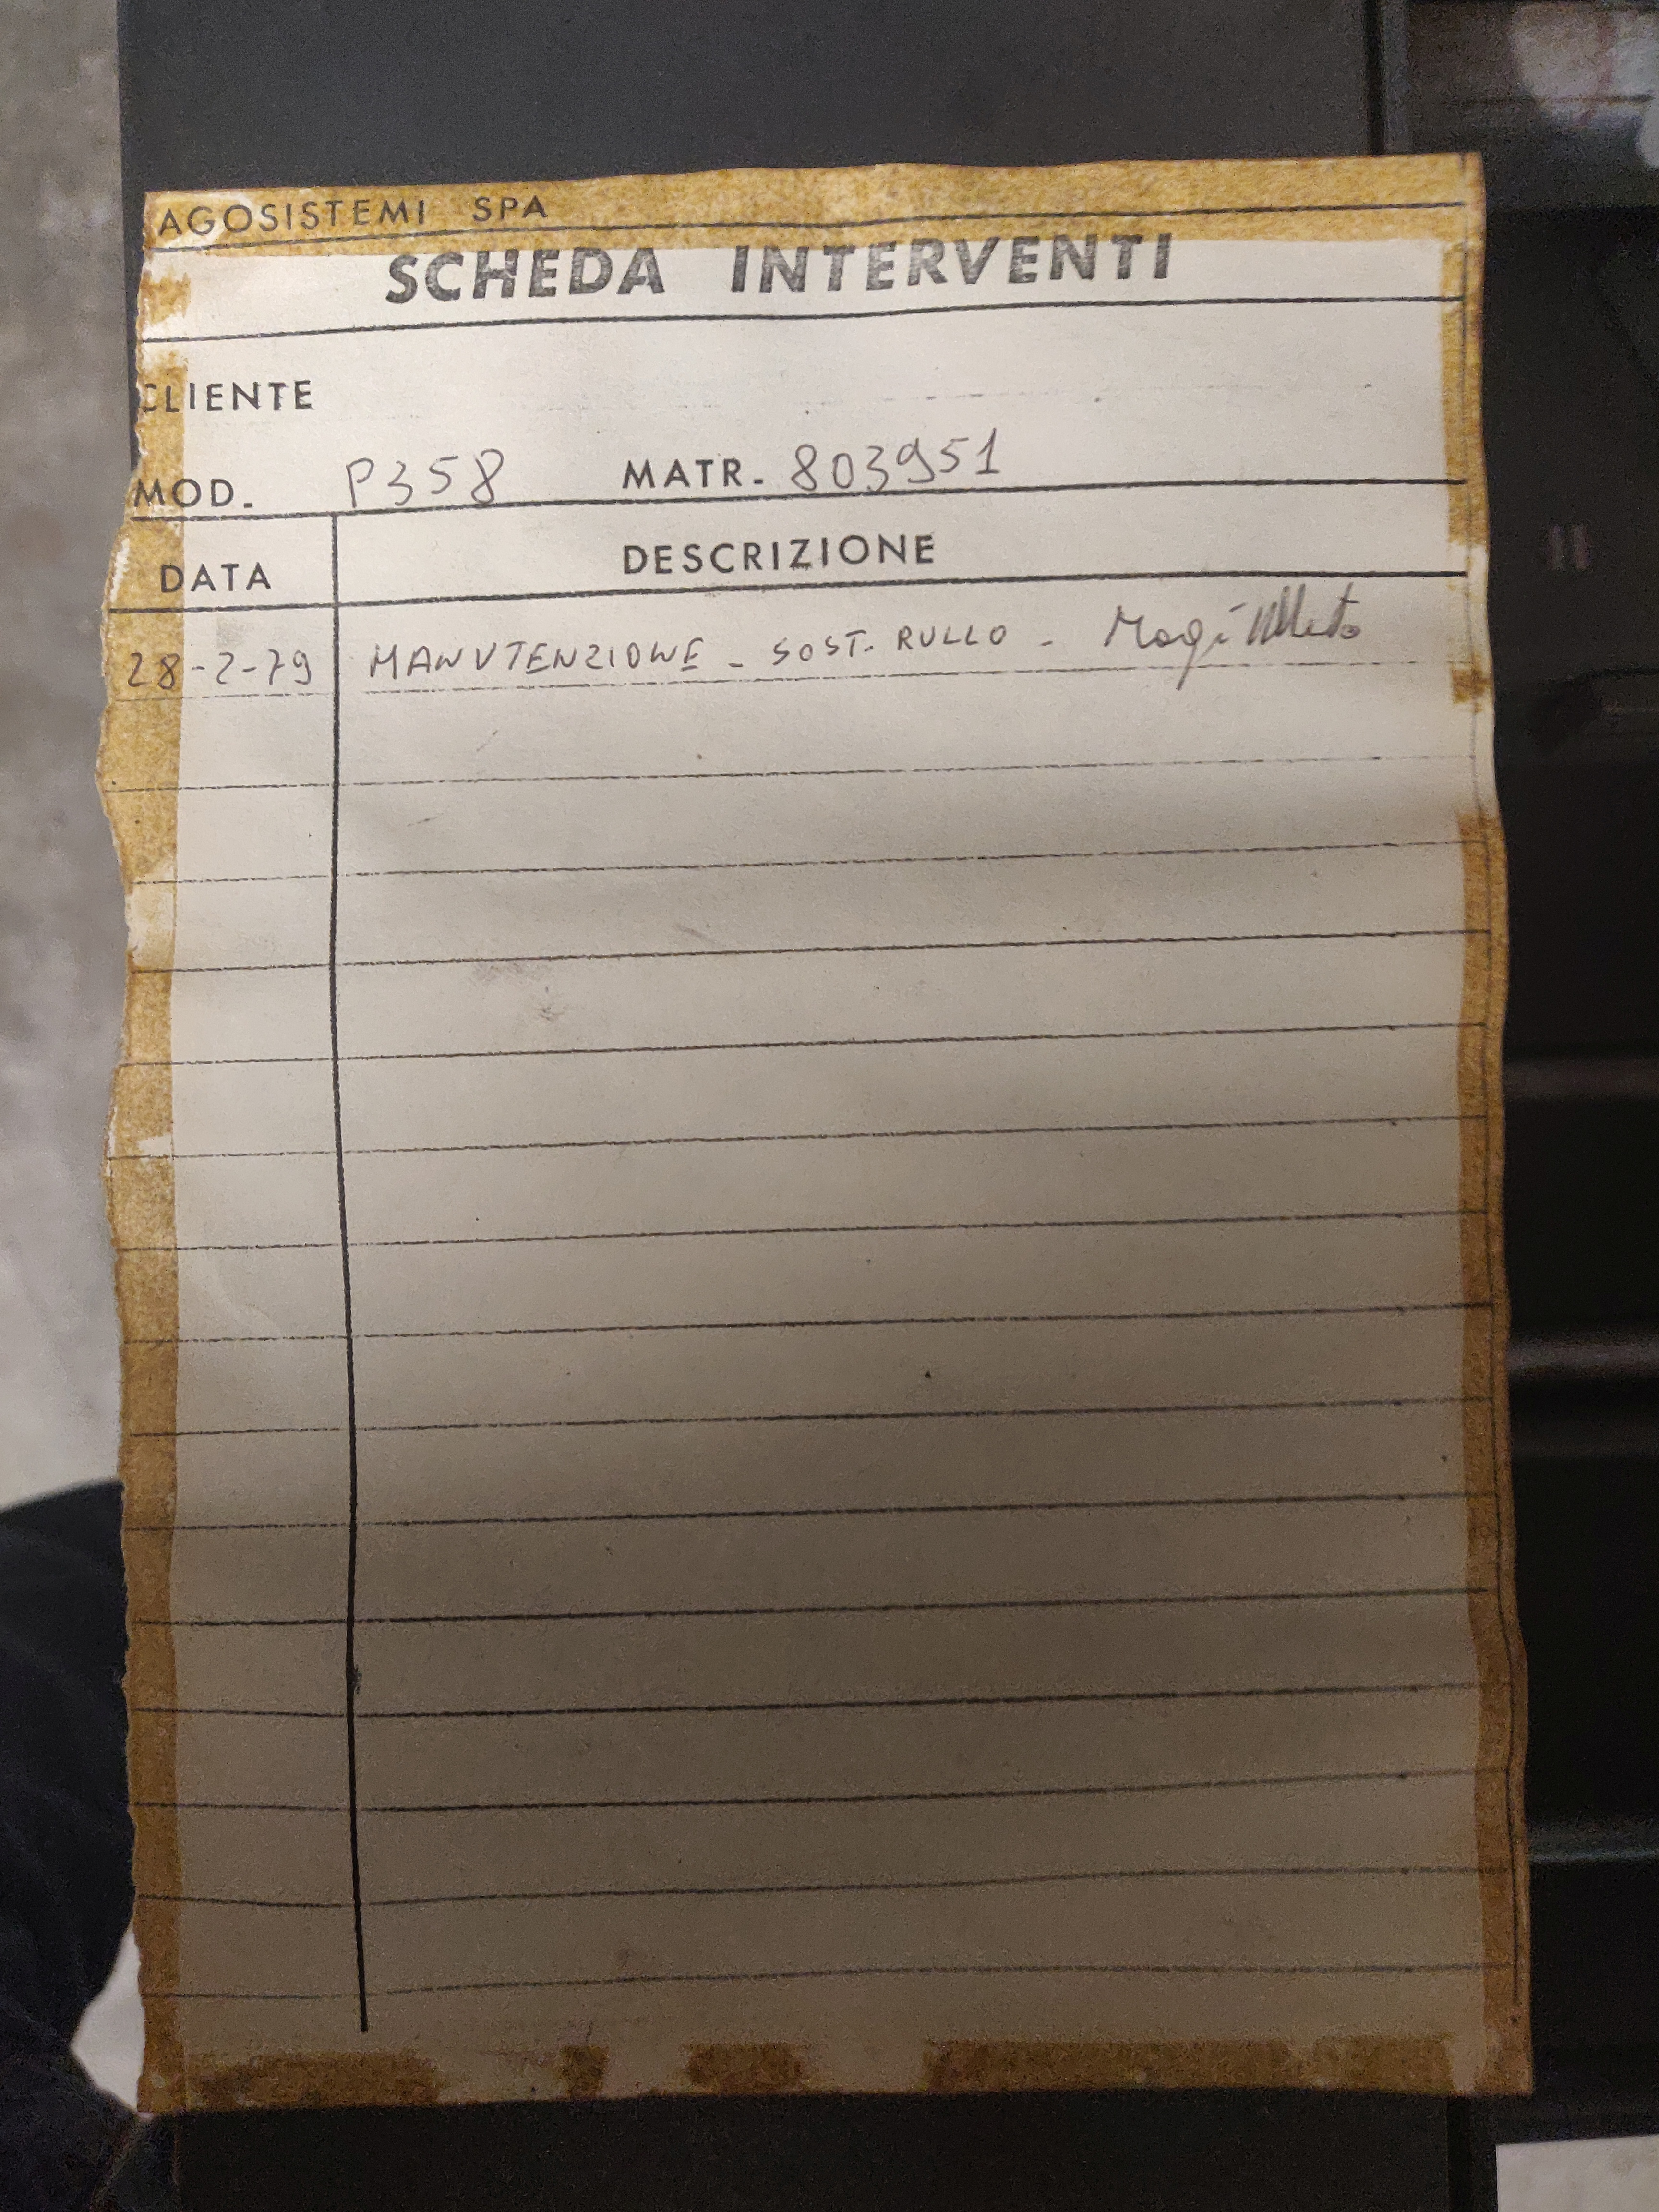 AGOSISTEMI SPA
SCHEDA INTERVENTI
CLIENTE
MOD. P358 MATR. 803951
DATA DESCRIZIONE
28-2-79 MANUTENZIONE - SOST. RULLO -